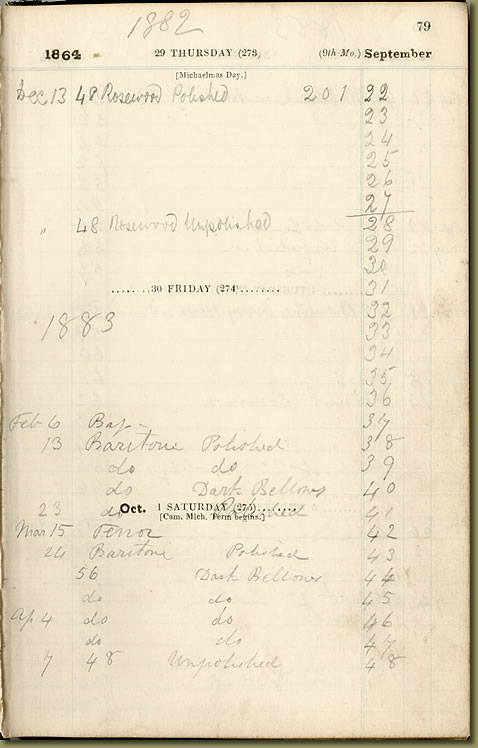 1882
79
1864 29 THURSDAY (273) (9th Mo.) September
[Michaelmas Day.]
Dec 13 48 Rosewood Polished 201 22
23
24
25
26
27
„ 48 Rosewood Unpolished 28
29
30
........30 FRIDAY (274)........ 31
1883 32
33
34
35
36
Feb 6 37
13 Baritone Polished 38
do do 39
do Dark Bellows 40
23 do Polished 41
Oct. 1 SATURDAY (275)........
[Cam. Mich. Term begins.]
Mar 15 Tenor 42
24 Baritone Polished 43
56 Dark Bellows 44
do do 45
Ap 4 do do 46
do do 47
7 48 Unpolished 48